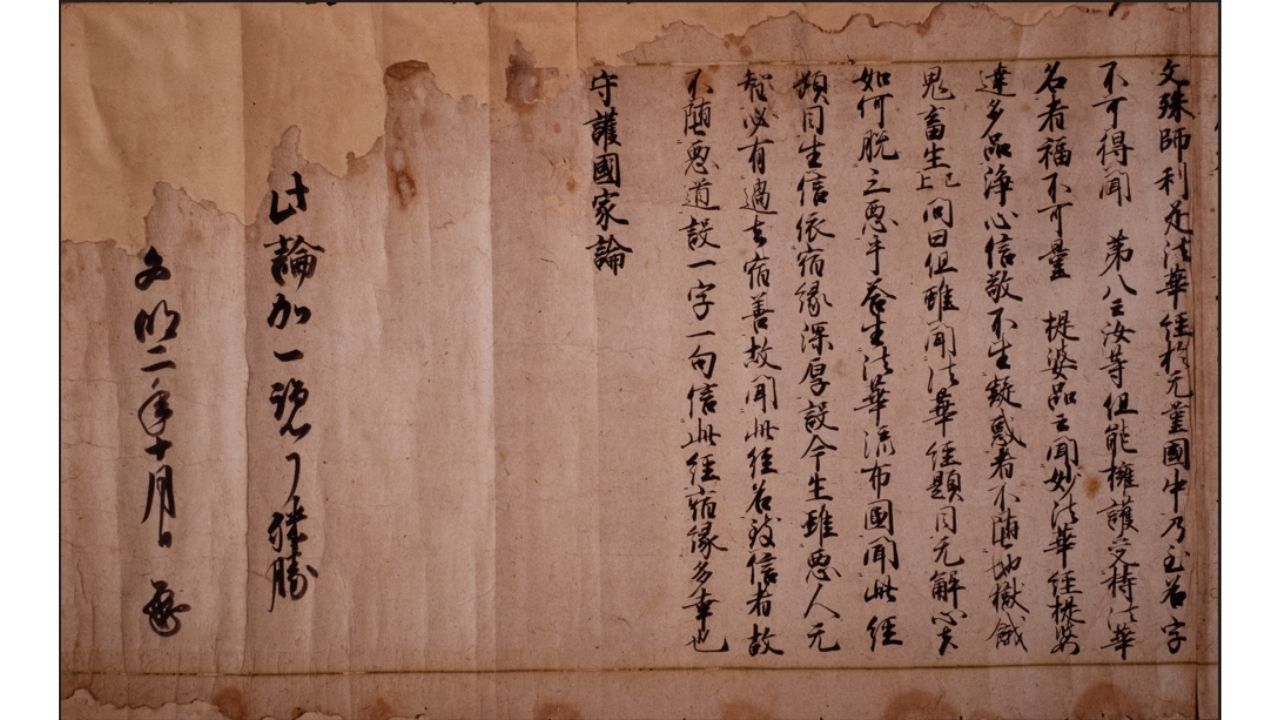 文殊師利是法華經於无量國中乃至名字
不可得聞　第八云汝等但能擁護受持法華
名者福不可量　提婆品云聞妙法華經提婆
達多品淨心信敬不生疑惑者不堕地獄餓
鬼畜生已上問曰但雖聞法華經題目无解心者
如何脱三悪乎答生法華流布國聞此經
題目生信依宿縁深厚設今生雖悪人无
智必有過去宿善故聞此經名致信者故
不堕悪道設一字一句信此經宿縁多幸也
守護國家論
此論加一覧了勝
文明二年十月日